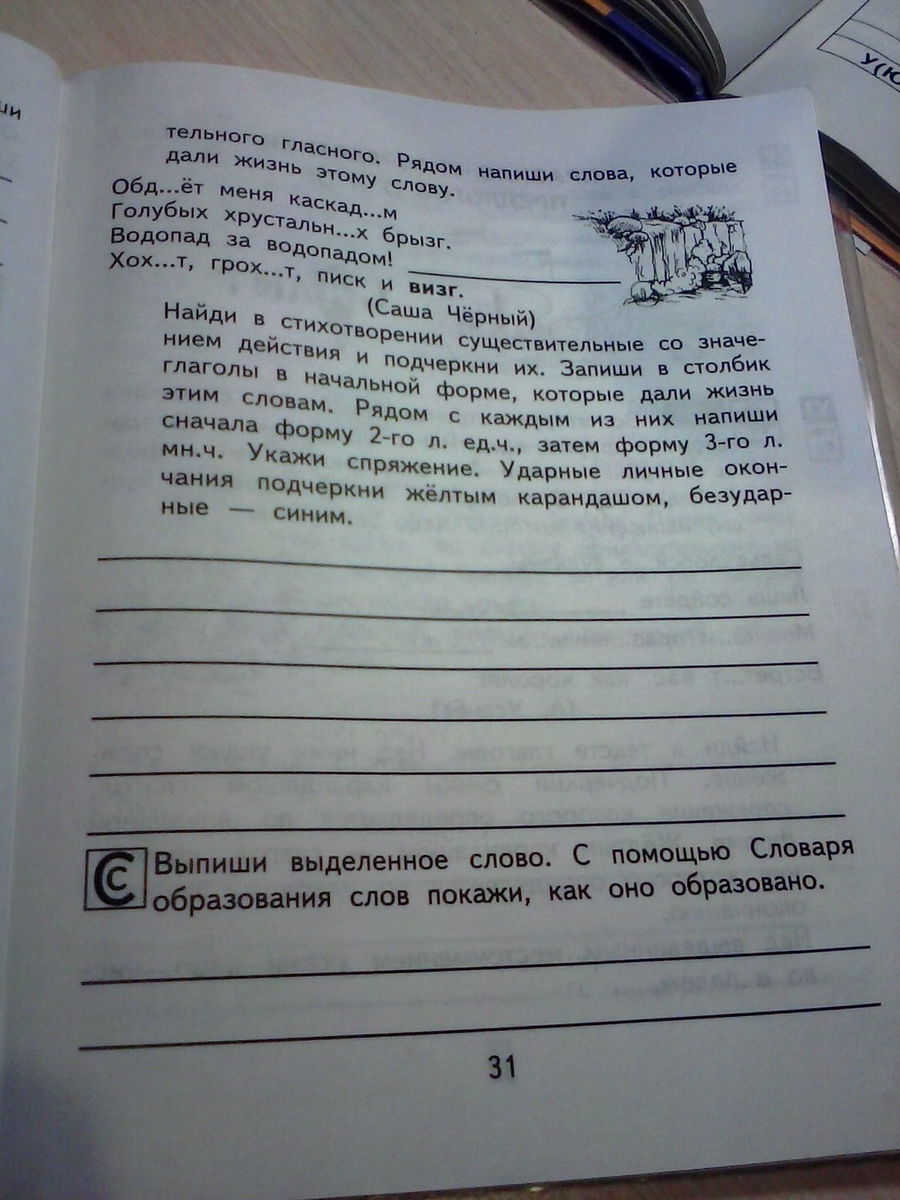 ши
У(Ю
тельного гласного. Рядом напиши слова, которые
дали жизнь этому слову.
Обд...ёт меня каскад...м
Голубых хрустальн...х брызг.
Водопад за водопадом!
Хох...т, грох...т, писк и визг.
(Саша Чёрный)
Найди в стихотворении существительные со значе-
нием действия и подчеркни их. Запиши в столбик
глаголы в начальной форме, которые дали жизнь
этим словам. Рядом с каждым из них напиши
сначала форму 2-го л. ед.ч., затем форму 3-го л.
мн.ч. Укажи спряжение. Ударные личные окон-
чания подчеркни жёлтым карандашом, безудар-
ные — синим.
С Выпиши выделенное слово. С помощью Словаря
образования слов покажи, как оно образовано.
31